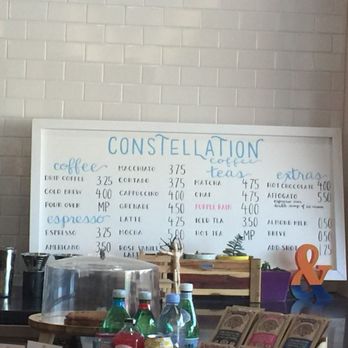 CONSTELLATION
coffee
coffee
DRIP COFFEE 3.25
COLD BREW 4.00
POUR OVER MP
espresso
ESPRESSO 3.25
AMERICANO 3.50
MACCHIATO 3.75
CORTADO 3.75
CAPPUCCINO 4.00
GRENADE 4.50
LATTE 4.75
MOCHA 5.00
ROSE VANILLA
LATTE
teas
MATCHA 4.75
CHAI 4.75
PURPLE RAIN 4.00
ICED TEA 3.50
HOT TEA MP
extras
HOT CHOCOLATE 4.00
AFFOGATO 5.50
ALMOND MILK .50
BREVE .50
ADD SHOT
&